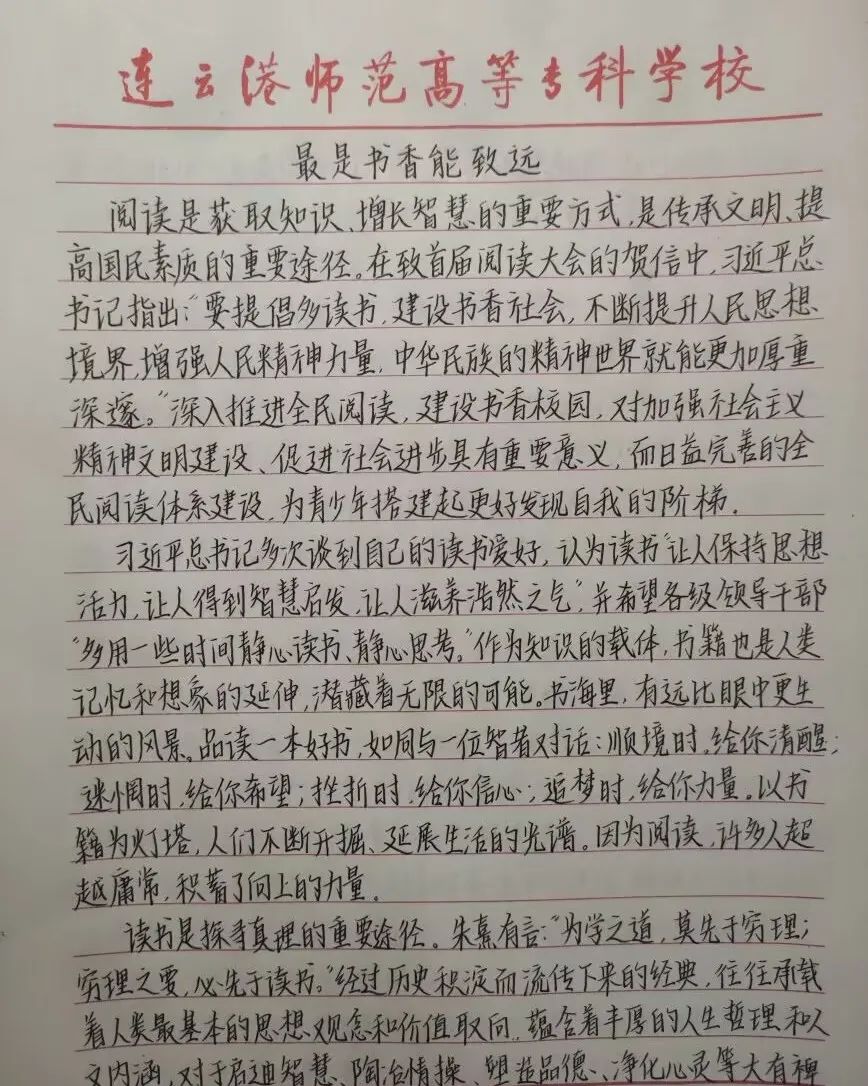 连云港师范高等专科学校
最是书香能致远
阅读是获取知识、增长智慧的重要方式,是传承文明、提
高国民素质的重要途径。在致首届阅读大会的贺信中,习近平总
书记指出:“要提倡多读书,建设书香社会,不断提升人民思想
境界,增强人民精神力量,中华民族的精神世界就能更加厚重
深邃。”深入推进全民阅读,建设书香校园,对加强社会主义
精神文明建设、促进社会进步具有重要意义,而日益完善的全
民阅读体系建设,为青少年搭建起更好发现自我的阶梯.
习近平总书记多次谈到自己的读书爱好,认为读书“让人保持思想
活力,让人得到智慧启发,让人滋养浩然之气”,并希望各级领导干部
“多用一些时间静心读书、静心思考。”作为知识的载体,书籍也是人类
记忆和想象的延伸,潜藏着无限的可能。书海里,有远比眼中更生
动的风景。品读一本好书,如同与一位智者对话:顺境时,给你清醒;
迷惘时,给你希望;挫折时,给你信心;追梦时,给你力量。以书
籍为灯塔,人们不断开掘、延展生活的光谱。因为阅读,许多人超
越庸常,积蓄了向上的力量。
读书是探寻真理的重要途径。朱熹有言:“为学之道,莫先于穷理;
穷理之要,必先于读书。”经过历史积淀而流传下来的经典,往往承载
着人类最基本的思想观念和价值取向,蕴含着丰厚的人生哲理和人
文内涵,对于启迪智慧、陶冶情操、塑造品德、净化心灵等大有裨